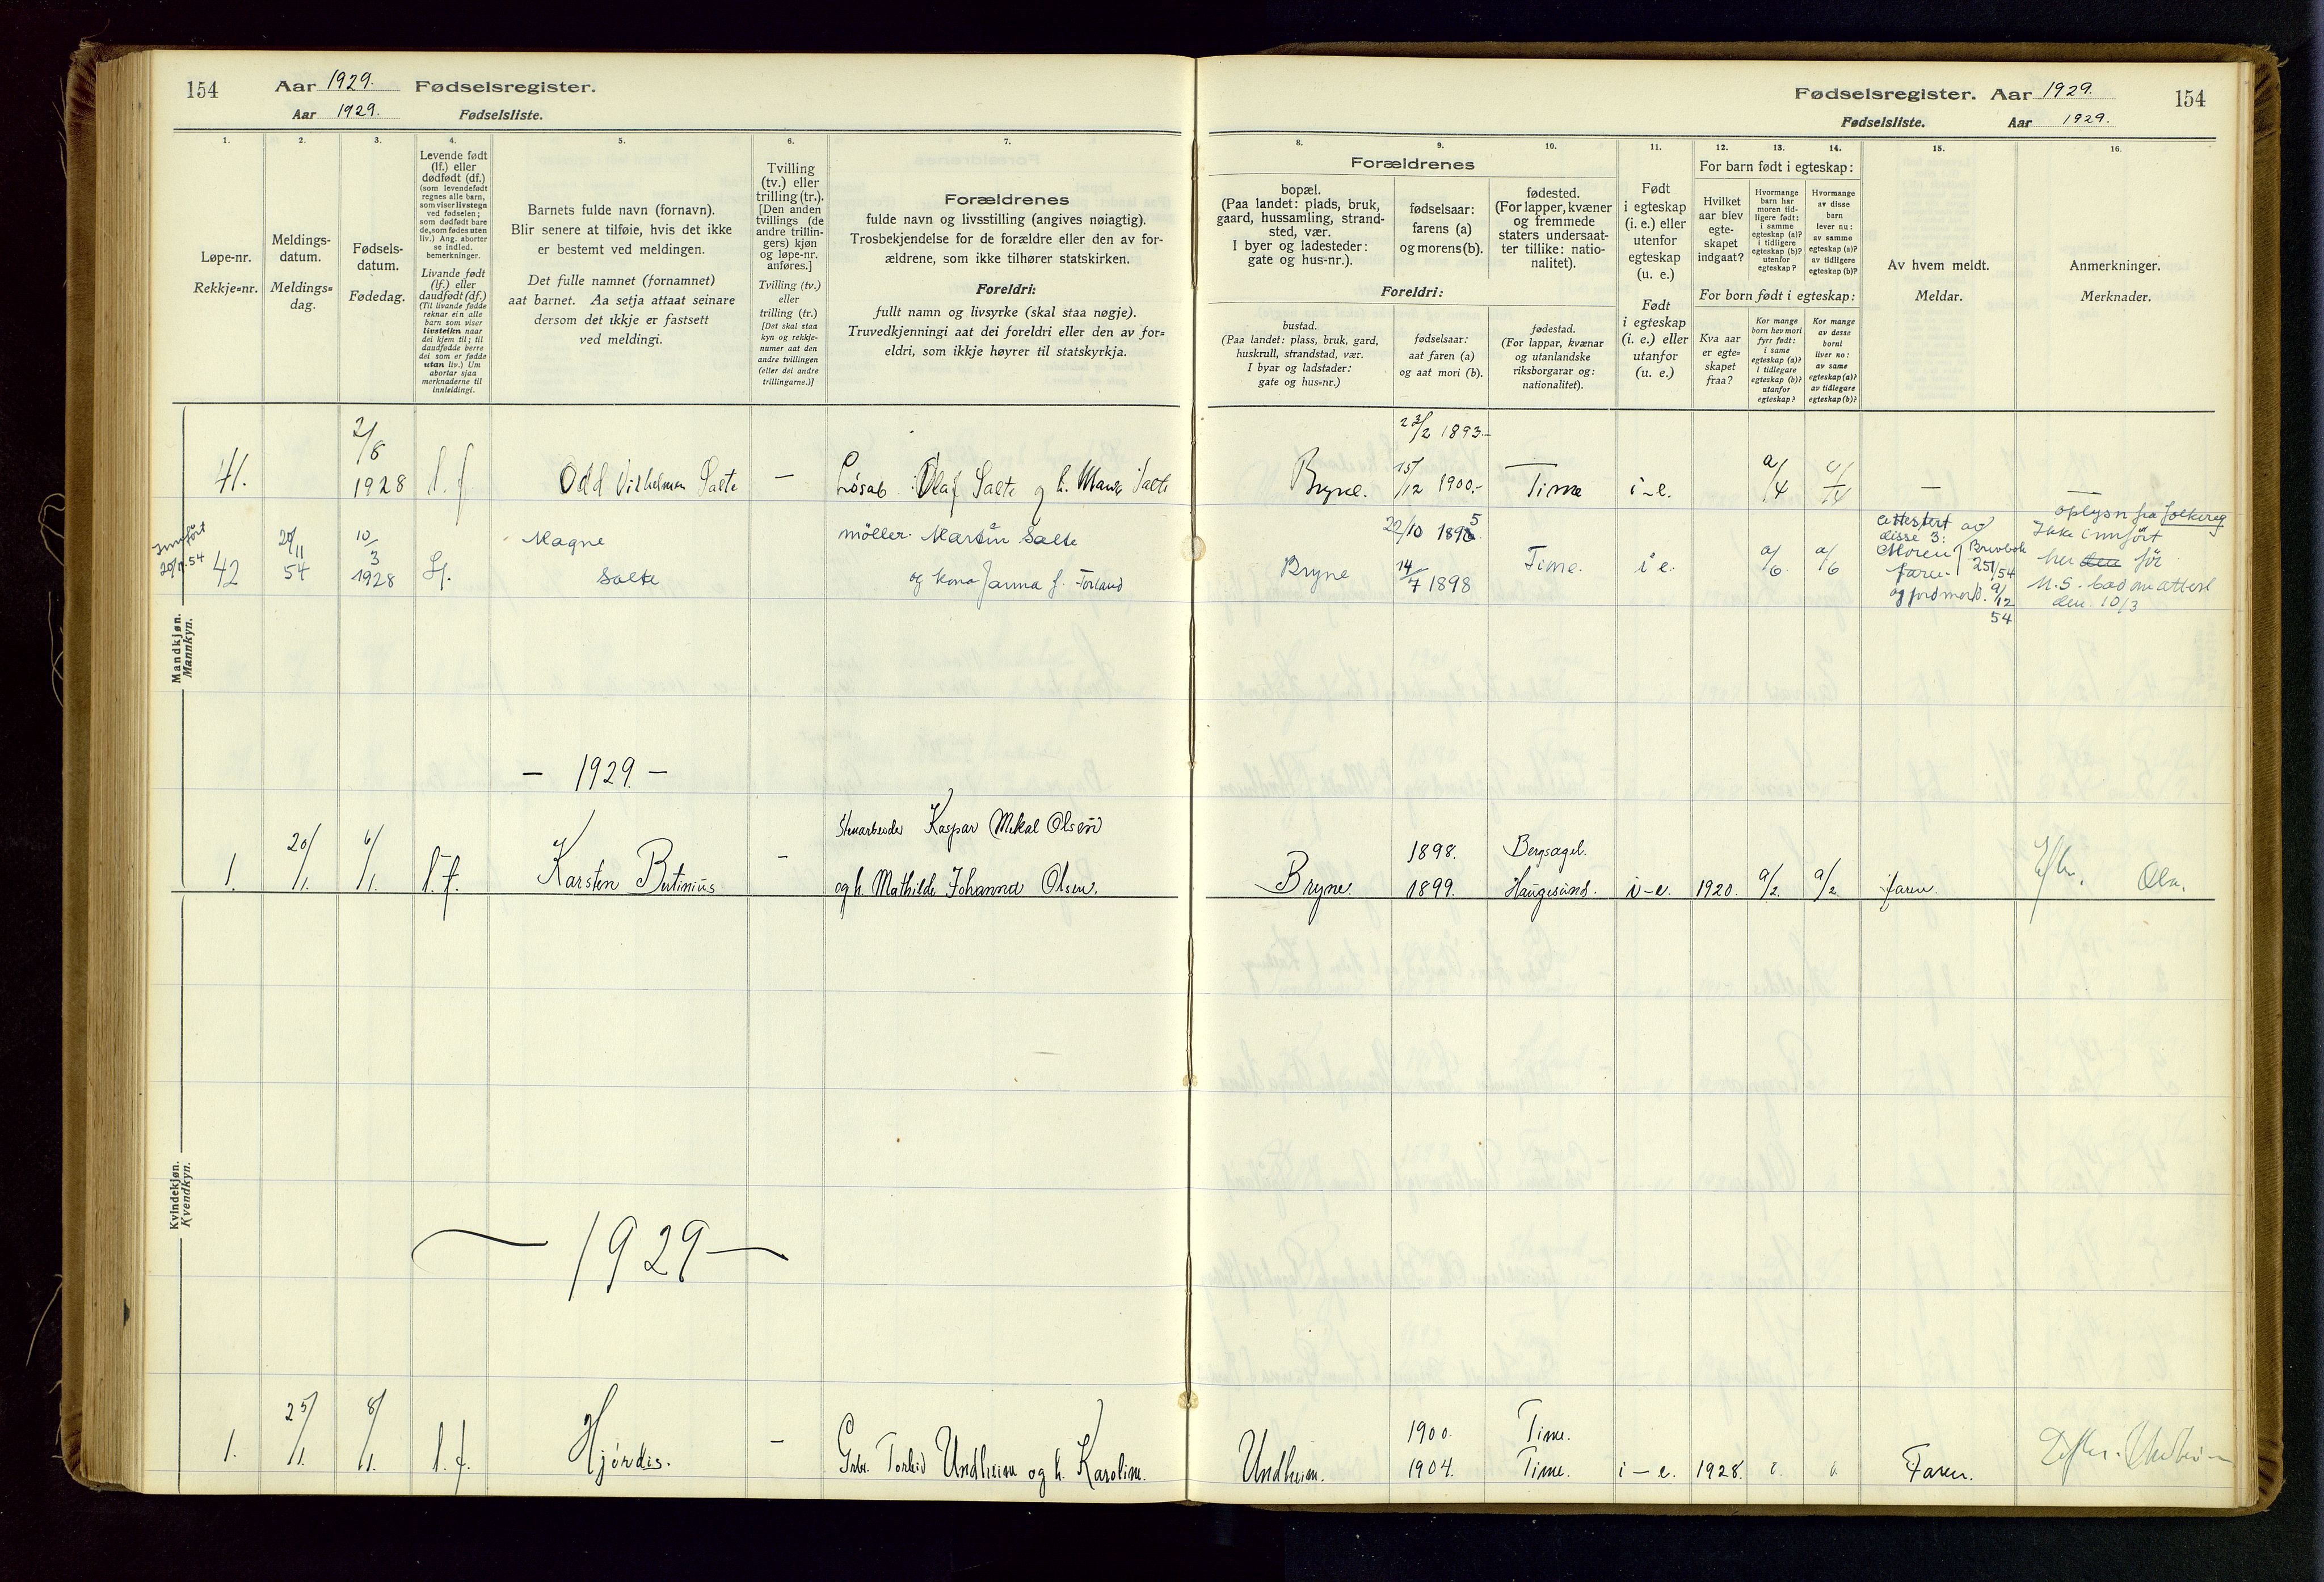 154
Aar 1929. Fødselsregister.
Aar 1929. Fødselsliste.
1.
Løpe-nr.
Rekkje-nr.
2.
Meldings-
datum.
Meldings-
dag.
3.
Fødsels-
datum.
Fødedag.
4.
Levende født
(lf.) eller
dødfødt (df.)
(som levendefødt
regnes alle barn,
som viser livstegn
ved fødselen;
som dødfødt bare
de, som fødes uten
liv.) Ang. aborter
se indled.
bemerkninger.
Livande født
(lf.) eller
daudfødt (df.)
(Til livande fødde
reknar ein alle
barn som viser
livsteikn naar
dei kjem til; til
daudfødde berre
dei som er fødde
utan liv.) Um
abortar sjaa
merknaderne til
innleidingi.
5.
Barnets fulde navn (fornavn).
Blir senere at tilføie, hvis det ikke
er bestemt ved meldingen.
Det fulle namnet (fornamnet)
aat barnet. Aa setja attaat seinare
dersom det ikkje er fastsett
ved meldingi.
6.
Tvilling
(tv.) eller
trilling (tr.).
[Den anden
tvillings (de
andre trillin-
gers) kjøn
og løpe-nr.
anføres.]
Tvilling (tv.)
eller
trilling (tr.)
[Det skal staa
kyn og rekkje-
numer aat den
andre tvillingen
(eller dei andre
trillingarne.)]
7.
Forældrenes
fulde navn og livsstilling (angives nøiagtig).
Trosbekjendelse for de forældre eller den av for-
ældrene, som ikke tilhører statskirken.
Foreldri:
fullt namn og livsyrke (skal staa nøgje).
Truvedkjenningi aat dei foreldri eller den av for-
eldri, som ikkje høyrer til statskyrkja.
Fødselsregister. Aar 1929. 154
Fødselsliste. Aar 1929.
Forældrenes
8.
bopæl.
(Paa landet: plads, bruk,
gaard, hussamling, strand-
sted, vær.
I byer og ladesteder:
gate og hus-nr.).
9.
fødselsaar:
farens (a)
og morens (b).
10.
fødested.
(For lapper, kvæner
og fremmede
staters undersaat-
ter tillike: natio-
nalitet).
Foreldri:
bustad.
(Paa landet: plass, bruk, gard,
huskrull, strandstad, vær.
I byar og ladstader:
gate og hus-nr.)
fødselsaar:
aat faren (a)
og aat mori (b).
fødestad.
(For lappar, kvænar
og utanlandske
riksborgarar og:
nationalitet).
11.
Født
i egteskap
(i. e.) eller
utenfor
egteskap
(u. e.)
Født
i egteskap
(i. e.) eller
utanfor
(u. e.)
12. 13. 14.
For barn født i egteskap:
Hvilket
aar blev
egte-
skapet
indgaat?
Hvormange
barn har
moren tid-
ligere født:
i samme
egteskap (a)?
i tidligere
egteskap (b)?
utenfor
egteskap?
Hvormange
av disse
barn
lever nu:
av samme
egteskap (a)?
av tidligere
egteskap (b)?
For born født i egteskap:
Kva aar
er egte-
skapet
fraa?
Kor mange
born hev mori
fyrr født:
i same
egteskap (a)?
i tidlegare
egteskap (b)?
utanfor
egteskap?
Kor mange
av desse
borni
liver no:
av same
egteskap (a)?
av tidlegare
egteskap (b)?
15.
Av hvem meldt.
Meldar.
16.
Anmerkninger.
Merknader.
Mandkjøn.
Mannkyn.
41. 2/8 1928 l. f. Odd Vilhelman Salte — Løsarb. Olaf Salte og h. Salte
Bryne. 23/2 1893 15/12 1900. Time i-e. a/4 a/4 — —
Innført
20/11.54
42 20/11 54 10/3 1928 Lf. Magne
Salte
møller Martin Salte
og kona Janna f. Torland
Bryne 22/10 1895 14/7 1898 Time. i e. a/6 a/6
attestert av
disse 3:
Moren
faren
og jordmord. 9/12 54
Brevbok
251/54
oplysn fra folkereg
Ikke innført
her den før
den 10/3
— 1929 —
1. 20/1. 6/1. l. f. Karsten Bertinius —
Stenarbeider Kaspar Mikal Olsen
og h. Mathilde Johanna Olsen.
Bryne. 1898. 1899. Bergsagel. Haugesund. i-e. 1920. a/2 a/2 faren.
Kvindekjøn.
Kvendkyn.
— 1929 —
1. 25/1. 8/1. l. f. Hjørdis. — Grbr. Torleiv Undheim og h. Karoline.
Undheim. 1900. 1904. Time. Time. i-e. 1928. Faren.